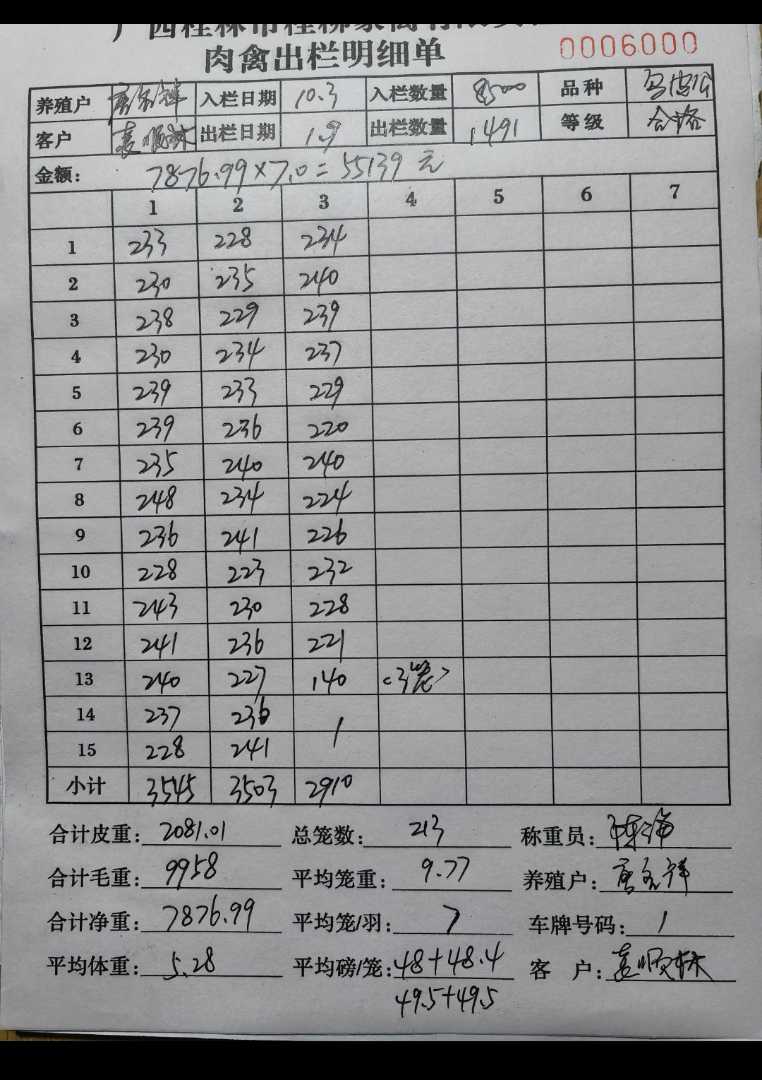 肉禽出栏明细单 0006000
养殖户 入栏日期 10.3 入栏数量 8500 品种
客户 袁顺林 出栏日期 1.9 出栏数量 1491 等级 合格
金额: 7876.99×7.0=55139元
1 2 3 4 5 6 7
1 233 228 234
2 230 235 240
3 238 229 239
4 230 234 237
5 239 233 229
6 239 236 220
7 235 240 240
8 248 234 224
9 236 241 226
10 228 223 232
11 243 230 228
12 241 236 221
13 240 227 140 <3笼>
14 237 236 /
15 228 241
小计 3545 3503 2910
合计皮重: 2081.01 总笼数: 213 称重员:
合计毛重: 9958 平均笼重: 9.77 养殖户:
合计净重: 7876.99 平均笼/羽: 7 车牌号码: /
平均体重: 5.28 平均磅/笼: 48+48.4 客 户: 袁顺林
49.5+49.5